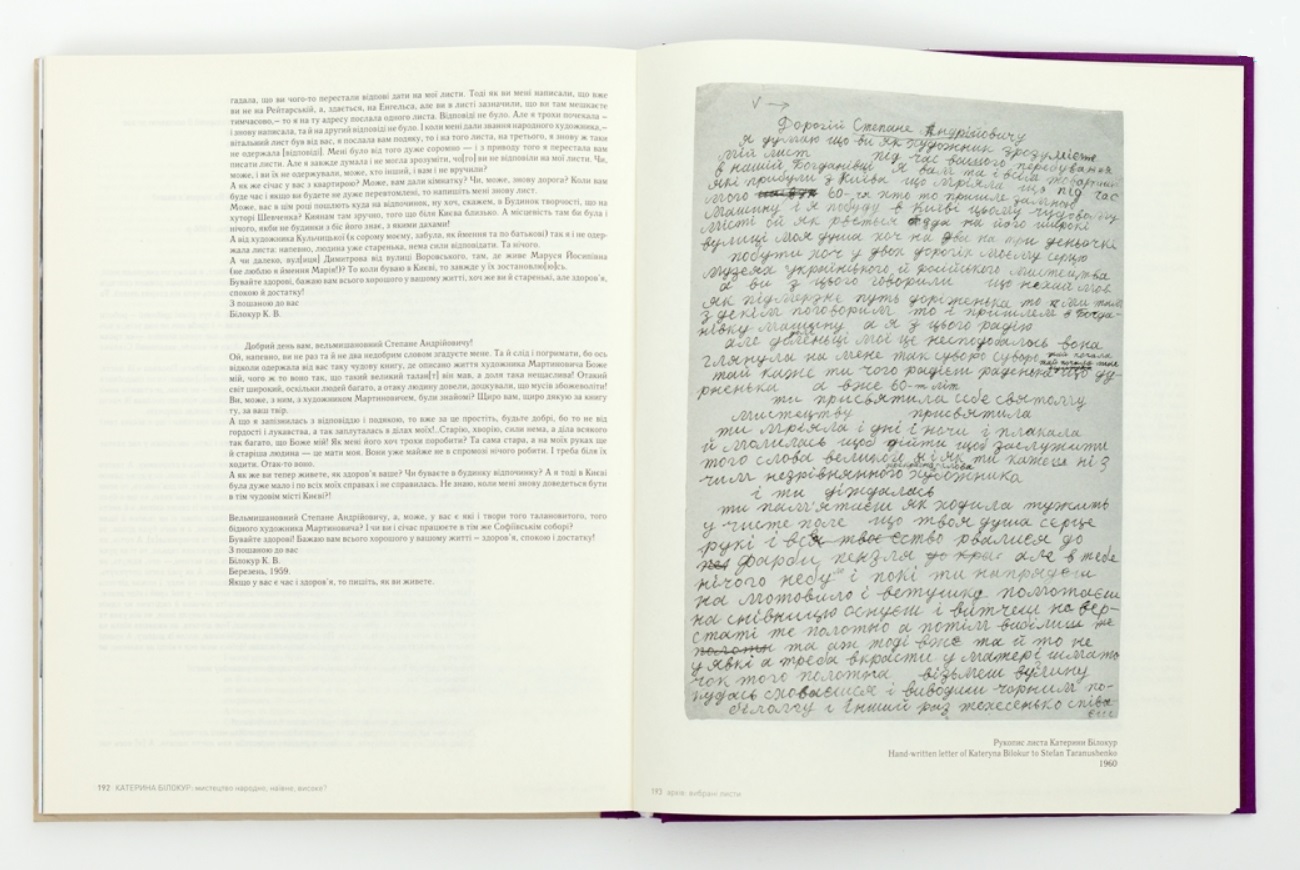 гадала, що ви чого-то перестали відпові дати на мої листи. Тоді як ви мені написали, що вже
ви не на Рейтарській, а, здається, на Енгельса, але ви в листі зазначили, що ви там мешкаєте
тимчасово,– то я на ту адресу послала одного листа. Відповіді не було. Але я трохи почекала –
і знову написала, та й на другий відповіді не було. І коли мені дали звання народного художника,–
вітальний лист був від вас, я послала вам подяку, то і на того листа, на третього, я знову ж таки
не одержала [відповіді]. Мені було від того дуже соромно — і з приводу того я перестала вам
писати листи. Але я завжде думала і не могла зрозуміти, чо[го] ви не відповіли на мої листи. Чи,
може, і ви їх не одержували, може, хто інший, і вам і не вручили?
А як же січас у вас з квартирою? Може, вам дали кімнатку? Чи, може, знову дорога? Коли вам
буде час і якщо ви будете не дуже перевтомлені, то напишіть мені знову лист.
Може, вас в цім році пошлють куда на відпочинок, ну хоч, скажем, в Будинок творчості, що на
хуторі Шевченка? Киянам там зручно, того що біле Києва близько. А місценість там би була і
нічого, якби не будинки з біс його знає, з якими дахами!
А від художника Кульчицької (к сорому моєму, забула, як ймення та по батькові) так я і не одер-
жала листа: напевно, людина уже старенька, нема сили відповідати. Та нічого.
А чи далеко, вул[иця] Димитрова від вулиці Воровського, там, де живе Маруся Йосипівна
(не люблю я ймення Марія!)? То коли буваю в Києві, то завжде у їх зостановлю[ю]сь.
Бувайте здорові, бажаю вам всього хорошого у вашому житті, хоч же ви й старенькі, але здоров'я,
спокою й достатку!
З пошаною до вас
Білокур К. В.
Добрий день вам, вельмишановний Степане Андрійовичу!
Ой, напевно, ви не раз та й не два недобрим словом згадуєте мене. Та й слід і погримати, бо ось
відколи одержала від вас таку чудову книгу, де описано життя художника Мартиновича Боже
мій, чого ж то воно так, що такий великий талан[т] він мав, а доля така нещаслива! Отакий
світ широкий, оскільки людей багато, а отаку людину довели, доцкували, що мусів збожеволіти!
Ви, може, з ним, з художником Мартиновичем, були знайомі? Щиро вам, щиро дякую за книгу
ту, за ваш твір.
А що я запізнилась з відповіддю і подякою, то вже за це простіть, будьте добрі, бо то не від
гордості і лукавства, а так заплуталась в ділах моїх!..Старію, хворію, сили нема, а діла всякого
так багато, що Боже мій! Як мені його хоч трохи поробити? Та сама стара, а на моїх руках ще
й старіша людина — це мати моя. Вони уже майже не в спромозі нічого робити. І треба біля їх
ходити. Отак-то воно.
А як же ви тепер живете, як здоров'я ваше? Чи буваєте в будинку відпочинку? А я тоді в Києві
була дуже мало і по всіх моїх справах і не справилась. Не знаю, коли мені знову доведеться бути
в тім чудовім місті Києві?!
Вельмишановний Степане Андрійовичу, а, може, у вас є які і твори того талановитого, того
бідного художника Мартиновича? І чи ви і січас працюєте в тім же Софіївськім соборі?
Бувайте здорові! Бажаю вам всього хорошого у вашому житті – здоров'я, спокою і достатку!
З пошаною до вас
Білокур К. В.
Березень, 1959.
Якщо у вас є час і здоров'я, то пишіть, як ви живете.
192 КАТЕРИНА БІЛОКУР: мистецтво народне, наївне, високе?
Дорогій Степане Андрійовичу
я думаю що ви як художник зрозумієте
мій лист під час вашого перебування
в нашій Богданівці я вам та і всім товариш
які прибули з Києва що мріяла що під час
мого 60-тя хто то пришле за мною
машину і я побуду в Києві цьому чудовому
місті ой як рветься туда на його широкі
вулиці моя душа хоч на два на три деньочки
побути хоч у двох дорогіх моєму серцю
музеях українського й російського мистецтва
а ви з цього говорили що нехай мов
як підмерзне путь доріженька то ми там
з декім поговорим то і пришлем в Богда-
нівку машину а я з цього радію
але дівчині моїй це несподобалось вона
глянула на мене так суворо суворо
тай каже ти чого радієш раденька що ду-
рненька а вже 60-т літ
ти присвятила себе святому
мистецтву присвятила
ти мріяла і дні і ночи і плакала
й молилась щоб дійти щоб заслужити
того слова великого ні як ти кажеш ні з
чим незрівнянного художника
і ти діждалась
ти пам'ятаєш як ходила тужить
у чисте поле що твоя душа серце
рукі і все твоє єство рвалися до
фарби, пензля але в тебе
нічого небу і покі ти напрядеш
на мотовило і ветушку помотаєш
на снівницю оснуєш і витчеш на вер-
статі те полотно а потім вибілиш
та аж тоді вже та й то не
у явкі а треба вкрасти у матері шмато
чок того полотна візьмеш вуглину
кудась сховаєшся і виводиш чорним по-
білому і інший раз тихесенько співа
єш
Рукопис листа Катерини Білокур
Hand-written letter of Kateryna Bilokur to Stefan Taranushenko
1960
193 архів: вибрані листи